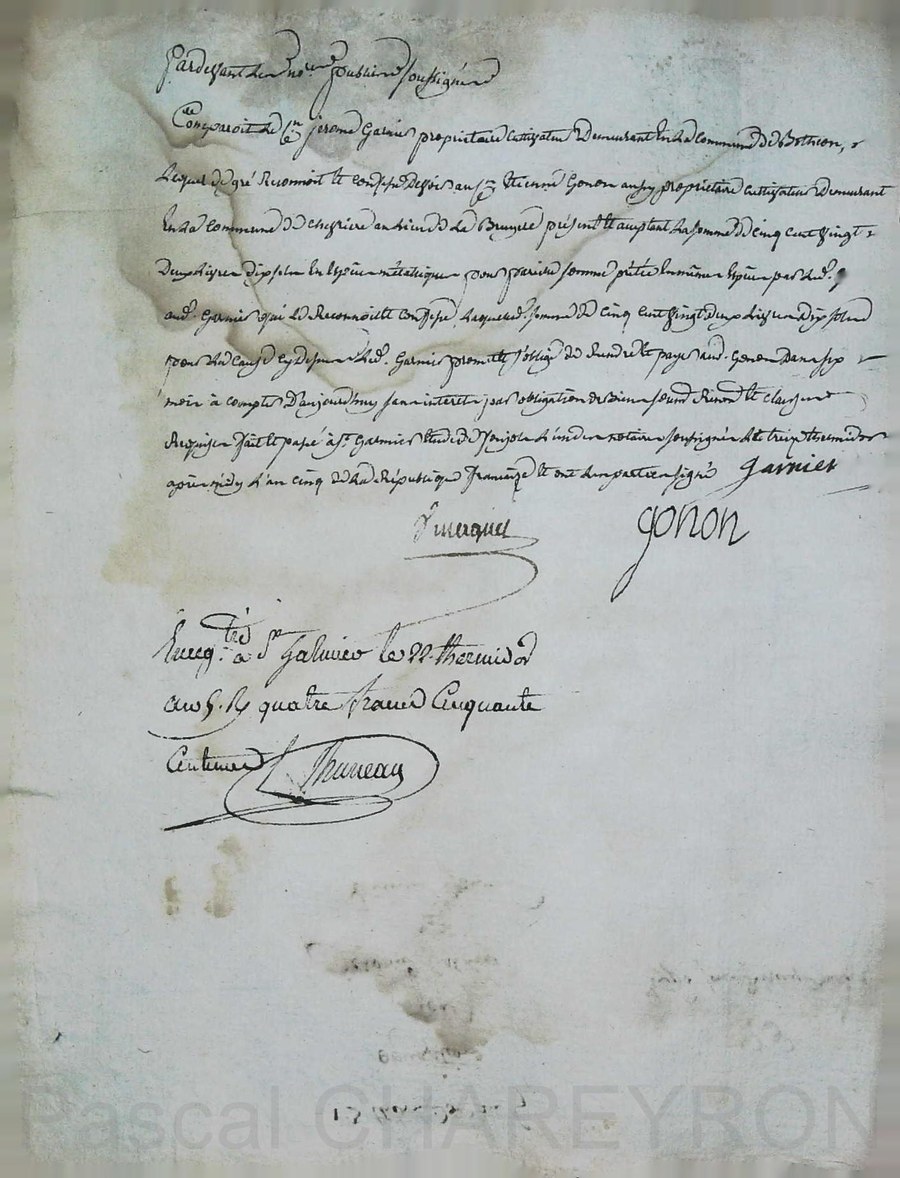 Pardevant les no.res publics soussignés
Comparoit le C.en jerome Garnier propriétaire cultivateur Demeurant En la commune de Bothéon,
Lequel de gré Reconnoit et confesse devoir au C.en Etienne Gonon aussy propriétaire cultivateur Demeurant
En la commune de chevriere au lieu de la Bruyere présent et aceptant La somme de cinq cent vingt
Deux livres dix sols En Espèces métalliques pour pareille somme prêtée En mêmes Espèces par led.
aud. Garnier qui le Reconnoit et confesse, Laquelle d. somme de Cinq Cent vingt deux livres dix sols
pour les causes cy Dessus led. Garnier promet et s'oblige de Rendre et payer aud. Gonon Dans six
mois à compter D'aujourd'huy sans interets par obligation de Biens soumd. Renond. et clauses
Requises fait et passé à S.t Garmier Etude de l'un des notaires soussignés Le treize thermidor
après midy L'an cinq de La République Françaize et ont Les parties signé Garnier
gonon
Enreg.tré à S.t Galmier le 22 thermidor
an 5. R quatre francs Cinquante
Centimes Thuneau
Pascal CHAREYRON